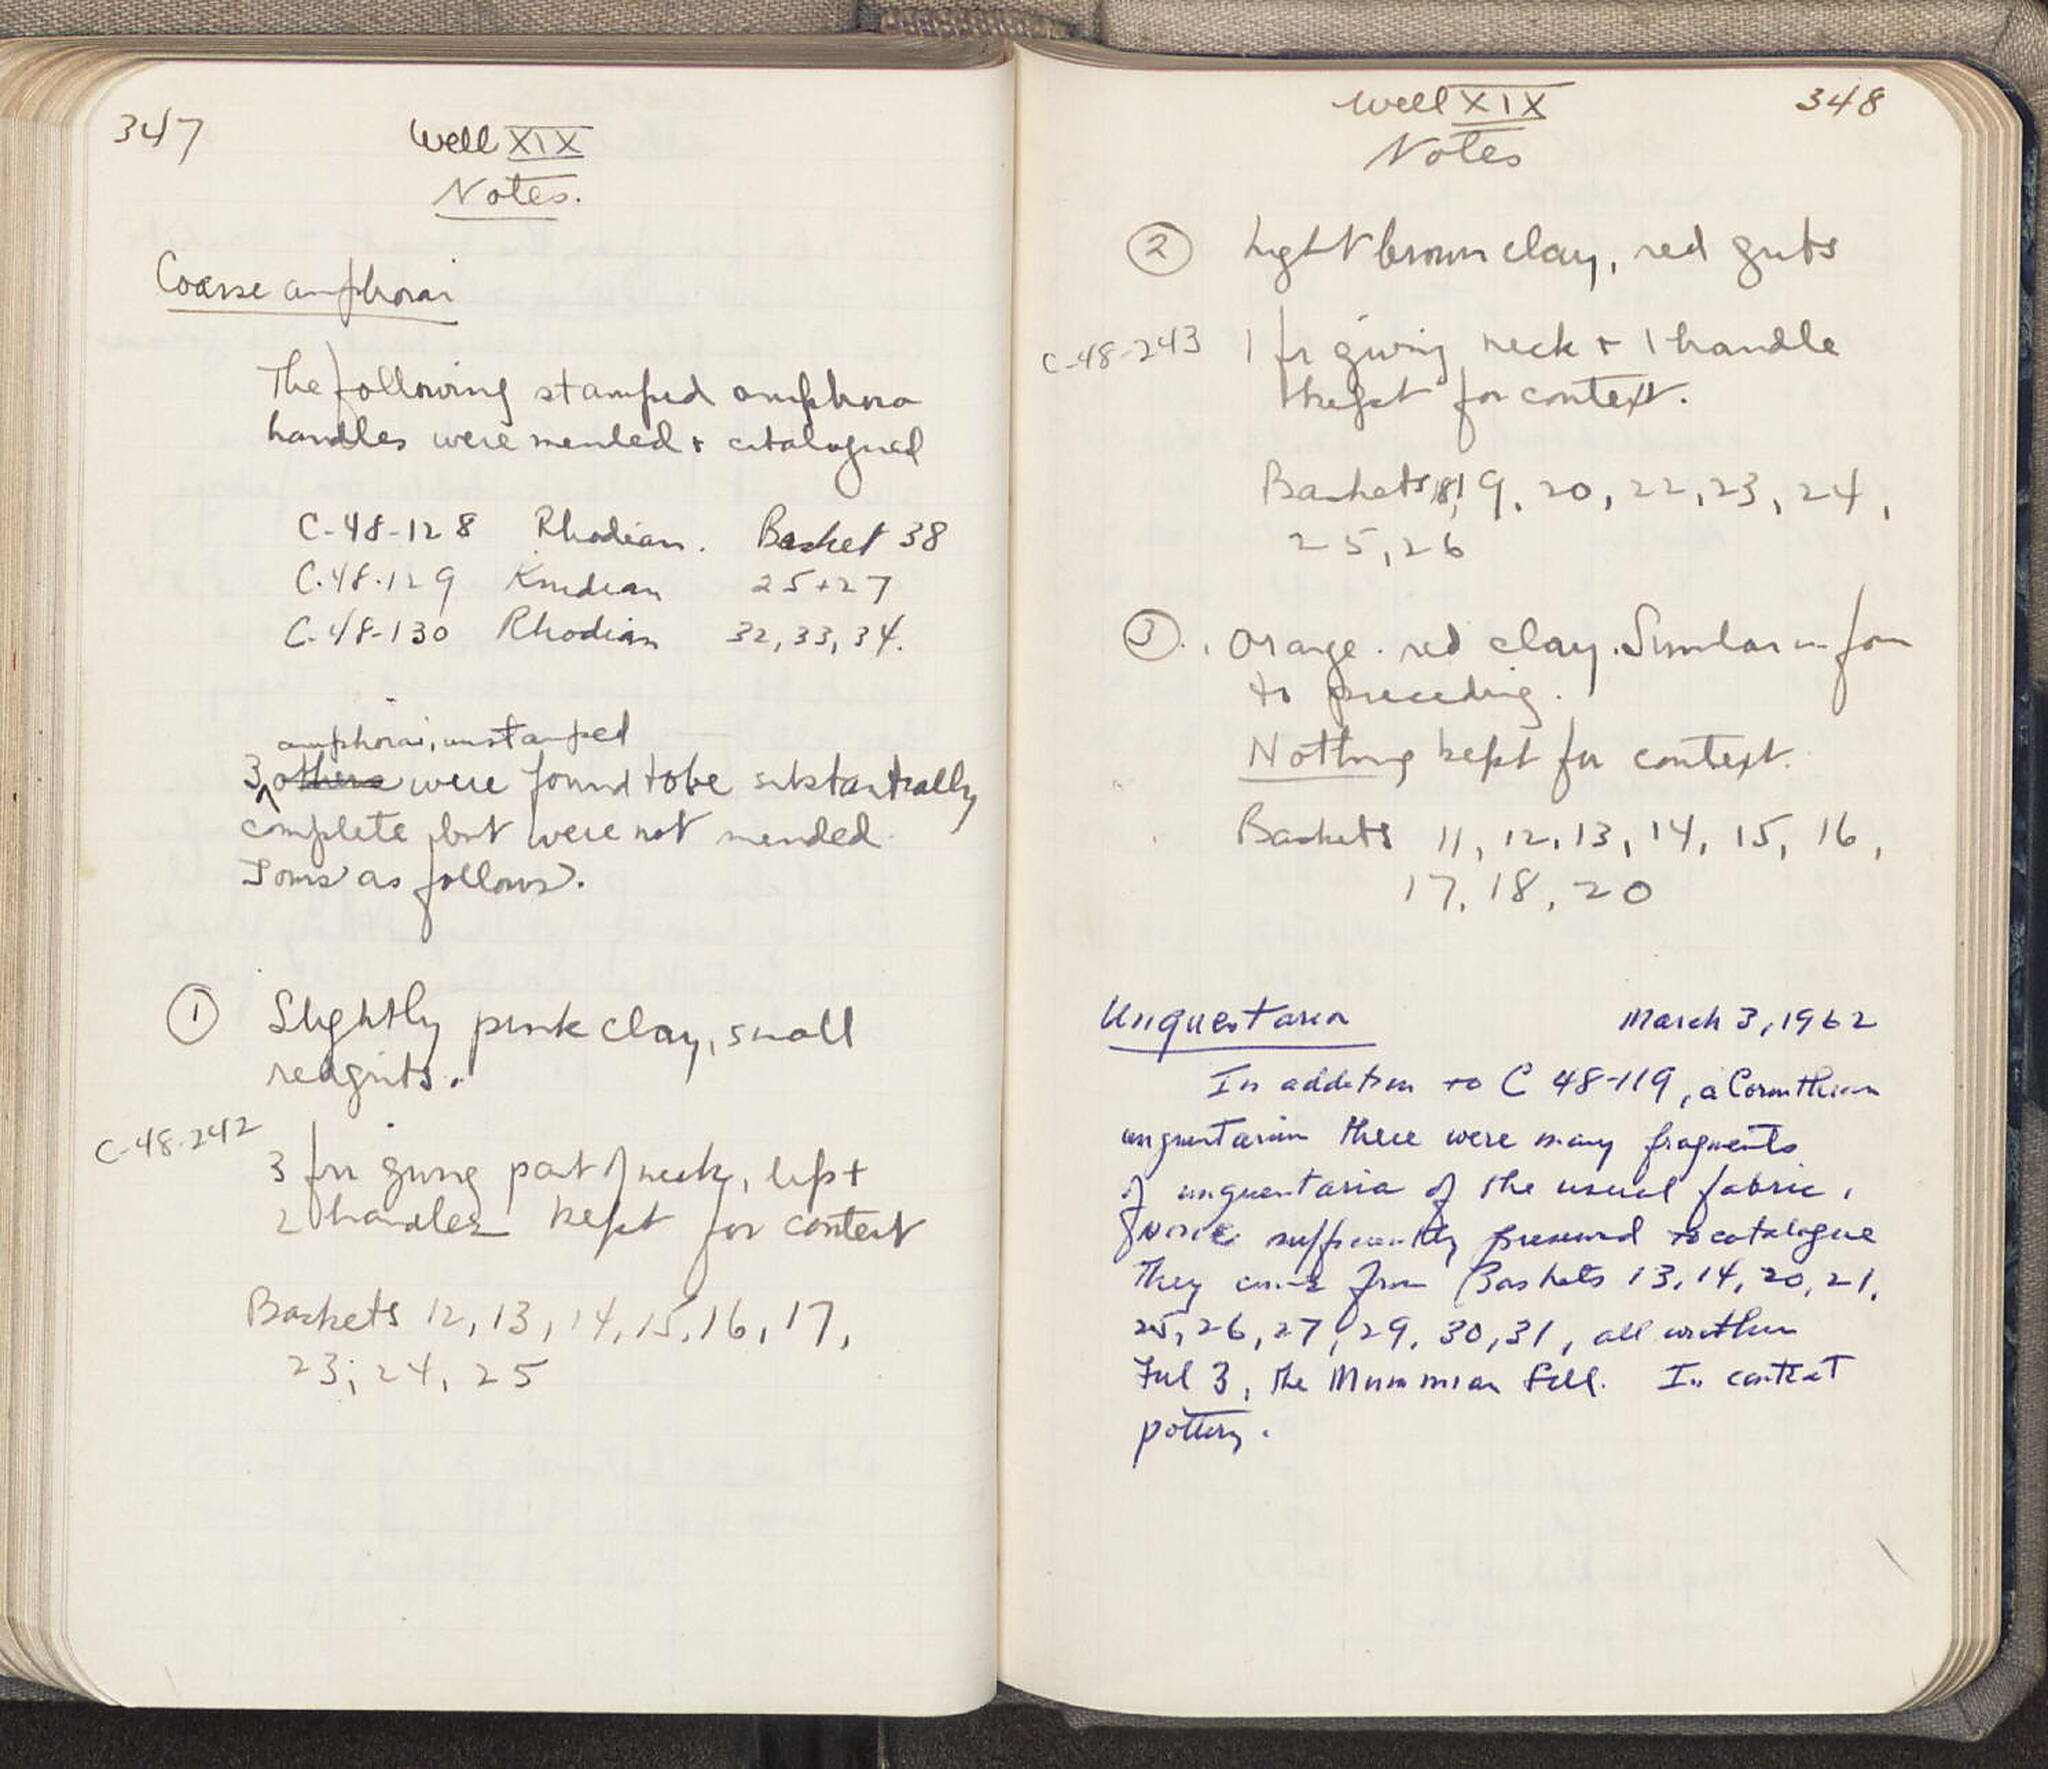 347
Well XIX
Notes.
Coarse amphorai
The following stamped amphora
handles were mended + catalogued
C-48-128 Rhodian. Basket 38
C-48-129 Knidian 25+27
C-48-130 Rhodian 32, 33, 34.
amphorai, unstamped
3 others were found to be substantially
complete but were not mended.
as follows.
① Slightly pink clay, small
red grits.
C-48-242
3 frr giving part of neck, lip +
2 handles kept for context
Baskets 12, 13, 14, 15, 16, 17,
23, 24, 25
348
Well XIX
Notes
② Light brown clay, red grits
C-48-243 1 fr giving neck + 1 handle
kept for context.
Baskets 18, 19, 20, 22, 23, 24,
25, 26
③ Orange-red clay. Similar in form
to preceding.
Nothing kept for context.
Baskets 11, 12, 13, 14, 15, 16,
17, 18, 20
Unguentaria March 3, 1962
In addition to C 48-119, a Corinthian
unguentarium there were many fragments
of unguentaria of the usual fabric,
none sufficiently preserved to catalogue
They come from Baskets 13, 14, 20, 21,
25, 26, 27, 29, 30, 31, all within
Fill 3, the Mummian fill. In context
pottery.